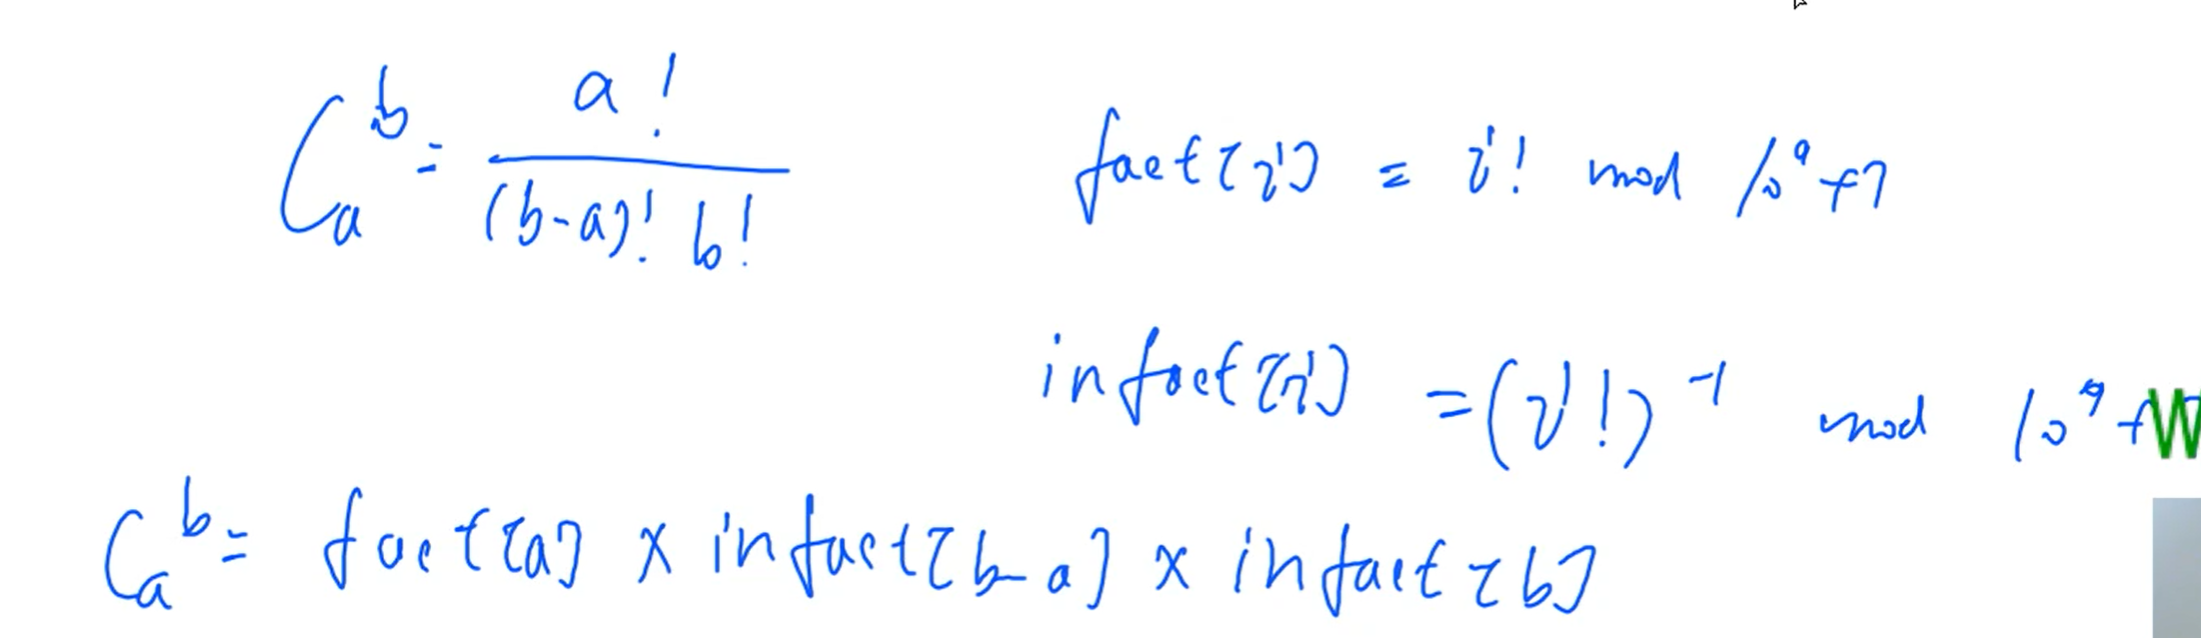 C_a^b = a! / (b-a)! b!
fact[i] = i! mod 10^9+7
infact[i] = (i!)^-1 mod 10^9+
W
C_a^b = fact[a] x infact[b-a] x infact[b]